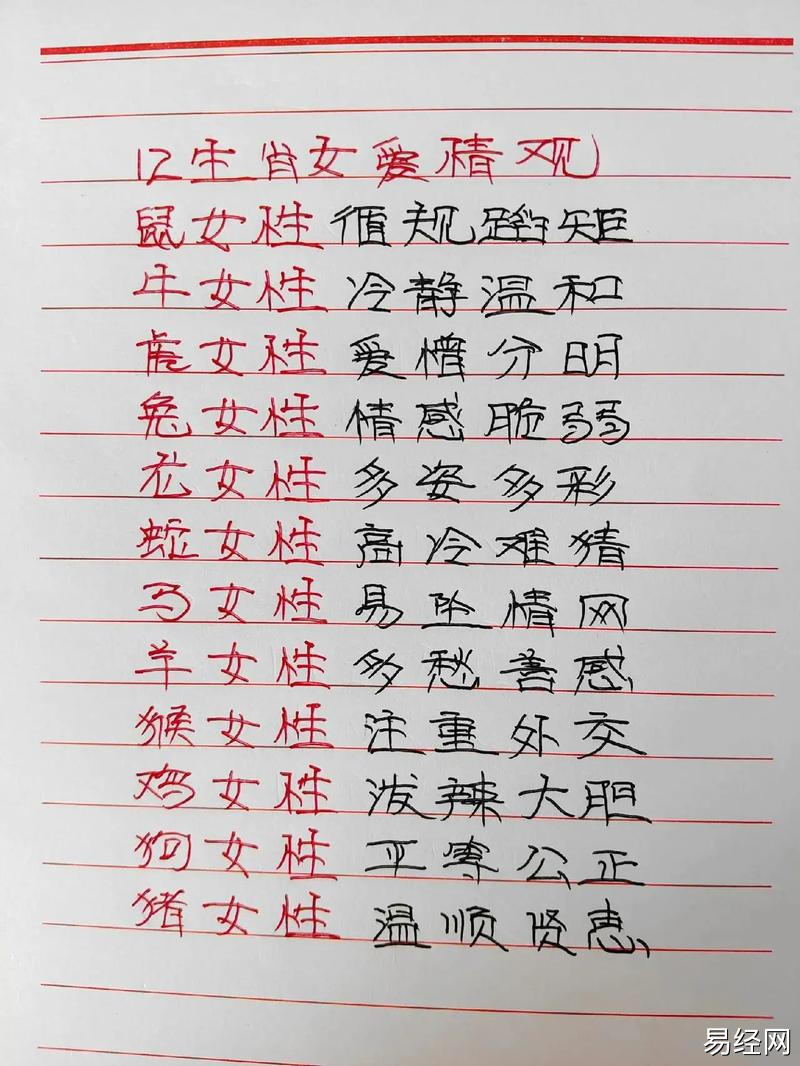 12生肖女爱情观
鼠女性 循规蹈矩
牛女性 冷静温和
虎女性 爱憎分明
兔女性 情感脆弱
龙女性 多姿多彩
蛇女性 高冷难猜
马女性 易坠情网
羊女性 多愁善感
猴女性 注重外交
鸡女性 泼辣大胆
狗女性 平等公正
猪女性 温顺贤惠
易经网